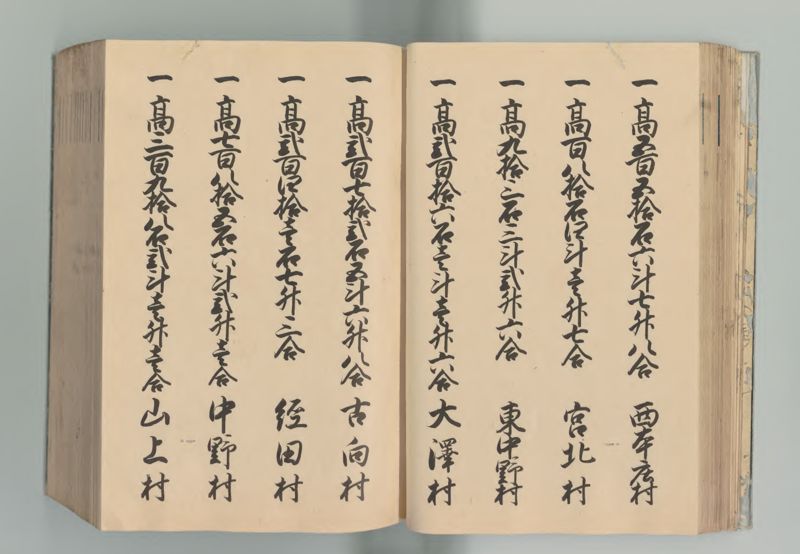 一高五百五拾石六斗七升八合 西本庄村
一高百八拾石四斗壱升七合 宮北村
一高九拾三石三斗弐升六合 東中野村
一高弐百拾六石壱斗壱升六合 大澤村
一高弐百七拾弐石五斗六升八合 古向村
一高弐百四拾壱石七升三合 経田村
一高七百八拾五石六斗弐升壱合 中野村
一高三百九拾八石弐斗壱升壱合 山上村